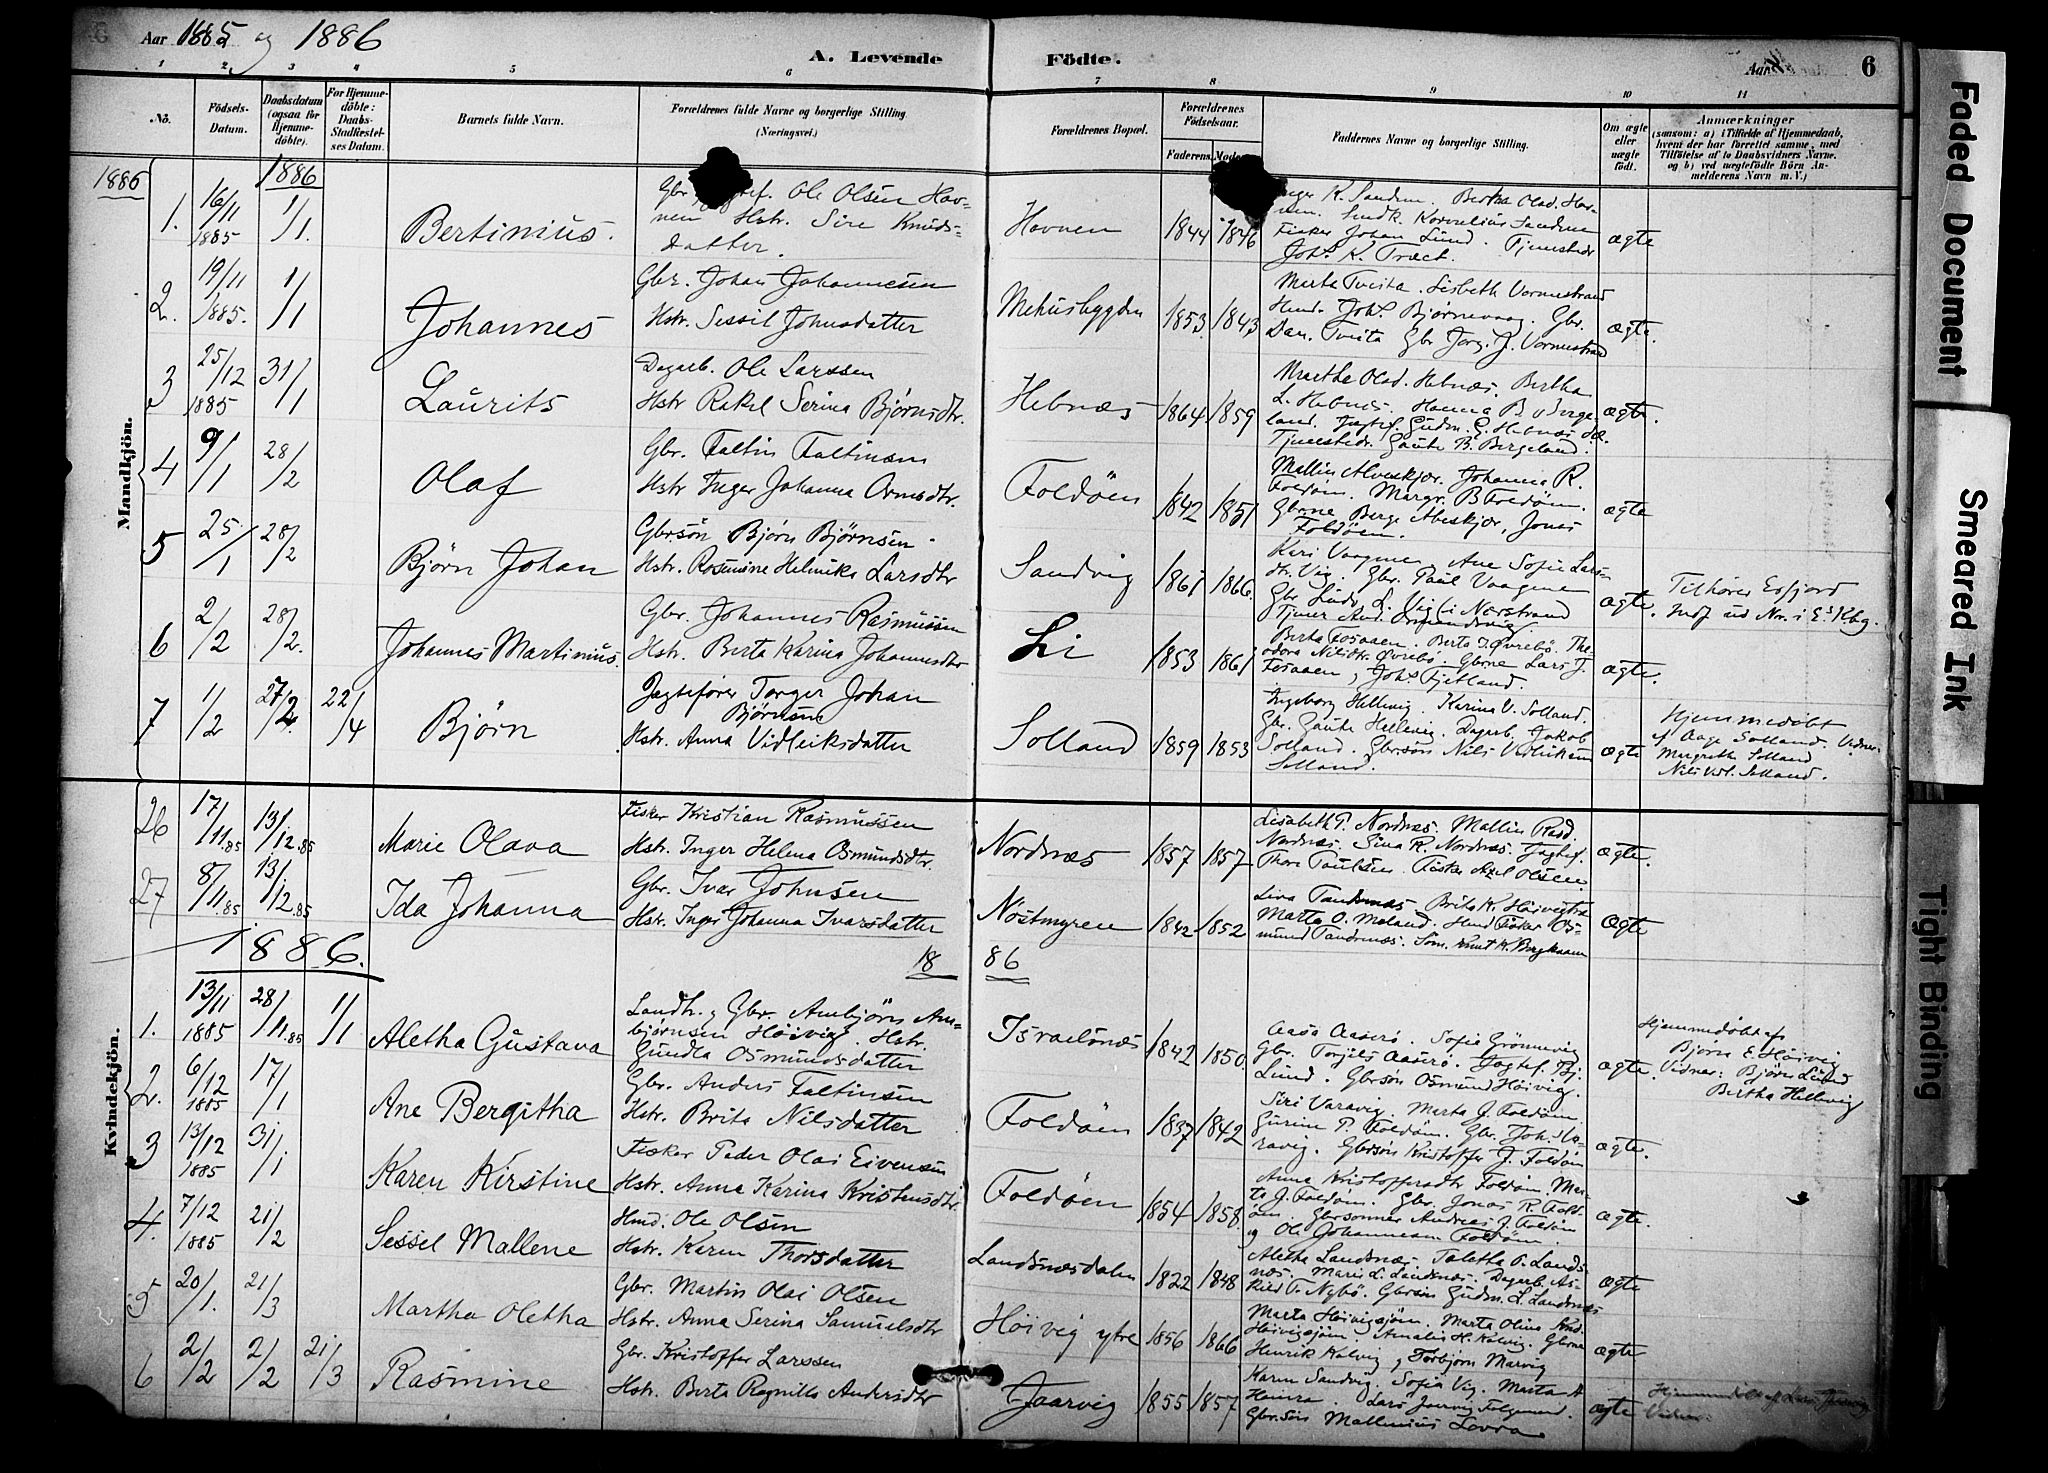 Aar 1885 og 1886
A. Levende Födte.
Aar
6
1 2 3 4 5 6 7 8 9 10 11
No.
Födsels-Datum.
Daabsdatum (ogsaa for Hjemme-döbte).
For Hjemme-döbte: Daabs-Stadfæstel-ses Datum.
Barnets fulde Navn.
Forældrenes fulde Navne og borgerlige Stilling (Næringsvei.)
Forældrenes Bopæl.
Forældrenes Födselsaar.
Faderens.
Faddernes Navne og borgerlige Stilling.
Om ægte eller uægte född.
Anmærkninger
(saasom: a) i Tilfælde af Hjemmedaab, hvem der har forrettet samme, med Tilföielse af to Daabsvidners Navne, og b) ved uægtefödte Börn An-melderens Navn m. V.)
Mandkjön.
1886
1886
1. 16/11 1885 1/1. Bertinius. Gbr Ole Olsen Hav-
nen Hstr. Sire Knuds-
datter.
Havnen 1844 1846
Fisker Johan Lund. Tjenestedr
Joh.s K. Træet.
ægte
2. 19/11 1885. 1/1 Johannes Gbr. Johan Johannesen
Hstr. Sessil Johnsdatter
Mehusbygden 1853 1843
Marta Tveita. Lisbeth Vormestrand
Joh.s Bjørnevaag. Gbr.
Dan. Tveita Gbr Jorg. J. Vormestrand
ægte.
3 25/12 1885 31/1 Laurits Dagarb. Ole Larssen
Hstr Rakel Serina Bjørnsdtr.
Hebnæs 1864 1859
Marthe Olsd. Hebnæs. Bertha
L. Hebnæs. Hanna B. Berge-
land. Jagtef. Gudm. G. Hebnæs
Tjenestedr. Gaute B. Bergeland.
ægte.
4 9/1 28/2 Olaf Gbr. Faltin Faltinsen
Hstr Inger Johanna Ormsdtr.
Foldöen 1842 1851
Mallin Alveskjær. Johanna R.
Foldöen. Margr. B Foldöen.
Gbrne Berge Alveskjær, Jonas
Foldöen.
ægte
5 25/1 28/2 Björn Johan Gbrsön Björn Björnsen
Hstr. Rosemine Helmika Larsdtr
Sandvig 1861 1866.
Kari Vaagene Ane Sofie Lars-
dtr. Vig. Gbr. Paul Vaagene
Gbr Lindv. L. Vig i Nærstrand
Tjener And.
ægte.
Tilhører Esfjord
Indf ud Nr. i E.s Kbg.
6 2/2 28/2. Johannes Martinius. Gbr. Johannes Rasmussen
Hstr. Berta Karina Johannesdtr
Li 1853 1861
Berta Fosaaen. Berta J. Øvrebö. The-
odora Nilsdtr. Øvrebö. Gbrne Lars J.
Fosaaen, Joh.s Fjetland.
ægte.
7 1/2 27/2. 22/4 Björn Jagtefører Torger Johan
Björnsen
Hstr. Anna Vidleiksdatter
Solland 1859 1853
Ingeborg Hellevig. Karina V. Solland.
Gbr. Gaute Hellevig. Dagarb. Jakob
Solland. Gbrsön Nils Vidleiksen
Solland.
ægte
Hjemmedöbt
af Aage Solland. Vidner
Margretha Solland
Nils Vidl. Solland.
Kvindekjön.
26 17/11.85 13/12.85 Marie Olava Fisker Kristian Rasmussen
Hstr. Inger Helena Osmundsdtr.
Nordnæs 1857 1857
Lisabeth T. Nordnæs. Mallin Rasd.
Nordnæs. Sina R. Nordnæs. Jagtef.
Thore Paulsen. Fisker Axel Olsen
ægte.
27 8/11.85 13/12.85 Ida Johanna Gbr. Ivar Johnsen
Hstr. Inger Johanna Ivarsdatter
Nöstmyren 1842 1852
Liva Tandrnæs. Brita K. Höivigstrø
Marta O. Meland. Hmd Fisker Os-
mund Tandrnæs. Söm. Knut K. Bergkaaen
ægte
1886.
18 86
1. 13/11 1885 28/11.85 1/1 Aletha Gustava Landh. og Gbr. Ambjörn Am-
bjørnsen Höivig. Hstr.
Gundla Osmundsdatter
Israelsnæs 1842 1850.
Aasa Aaserö. Sofie Grönnevig
Gbr. Torjils Aaserö. Jagtef. Bj.
Lund. Gbrsön Osmund Höivig.
ægte.
Hjemmedöbt af
Björn E. Höivig
Vidner: Björn Lund
Birtha Hellevig
2. 6/12 1885 17/1 Ane Bergitha Gbr. Anders Faltinsen
Hstr. Brita Nilsdatter
Foldöen 1837 1842
Siri Varavig. Marta J. Foldöen
Gurine P. Foldöen. Gbr. Joh. Va-
ravig. Gbrsön Kristoffer J. Foldöen
ægte.
3 13/12 1885 31/1 Karen Kirstine Fisker Peder Olai Eivensen
Hstr. Anna Karina Kristensdtr.
Foldöen 1854 1858.
Anna Kristoffersdtr Foldöen. Mar-
ta J. Foldöen. Gbr. Jonas R. Fold-
öen. Gbrsönner Andreas J. Foldöen
og Ole Johannesen Foldöen.
ægte.
4. 7/12 1885 21/2 Sessel Mallene Hmd. Ole Olsen
Hstr. Karen Thorsdatter
Landsnæsdalen 1822 1848
Aletha Landsnæs. Taletha O. Lands-
næs. Marie L. Landsnæs. Dagarb. As-
kild T. Nybö. Gbrsön Gudm. L. Landsnæs
ægte
5 20/1. 21/3 Martha Oletha Gbr. Martin Olai Olsen
Hstr. Anna Serina Samuelsdtr
Höivig ytre 1856 1866
Marta Höivigsjöen. Marta Olina Knd.
Höivigsjöen. Amalie H. Kalvig. Gbrne
Henrik Kalvig og Torbjørn Marvig
ægte
6 2/2 2/2 21/3 Rasmine Gbr. Kristoffer Larssen
Hstr. Berta Ragnilla Andersdtr
Jaarvig 1855 1857
Karen Sandvig. Sofia Vig. Marta A
Heimra. Lars Jaarvig
Gbr. Sön Mallinius Lovra
ægte
Faded Document
Smeared Ink
Tight Binding